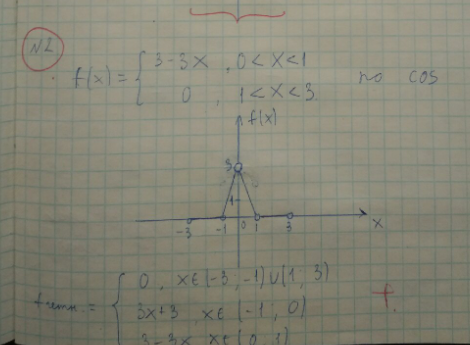 N2
f(x) = { 3-3x , 0 < x < 1
0 , 1 < x < 3
по cos
f(x)
3
1
-3 -1 0 1 3 x
f четн. = { 0 , x ∈ (-3, -1) ∪ (1, 3)
3x+3 , x ∈ (-1, 0)
3-3x , x ∈ (0, 1)